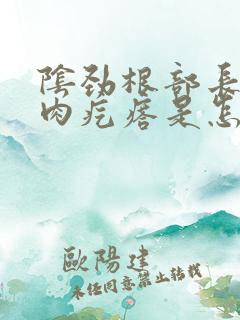 陰勁根部長
肉疙瘩是怎
歐陽建
未經同意禁止轉載